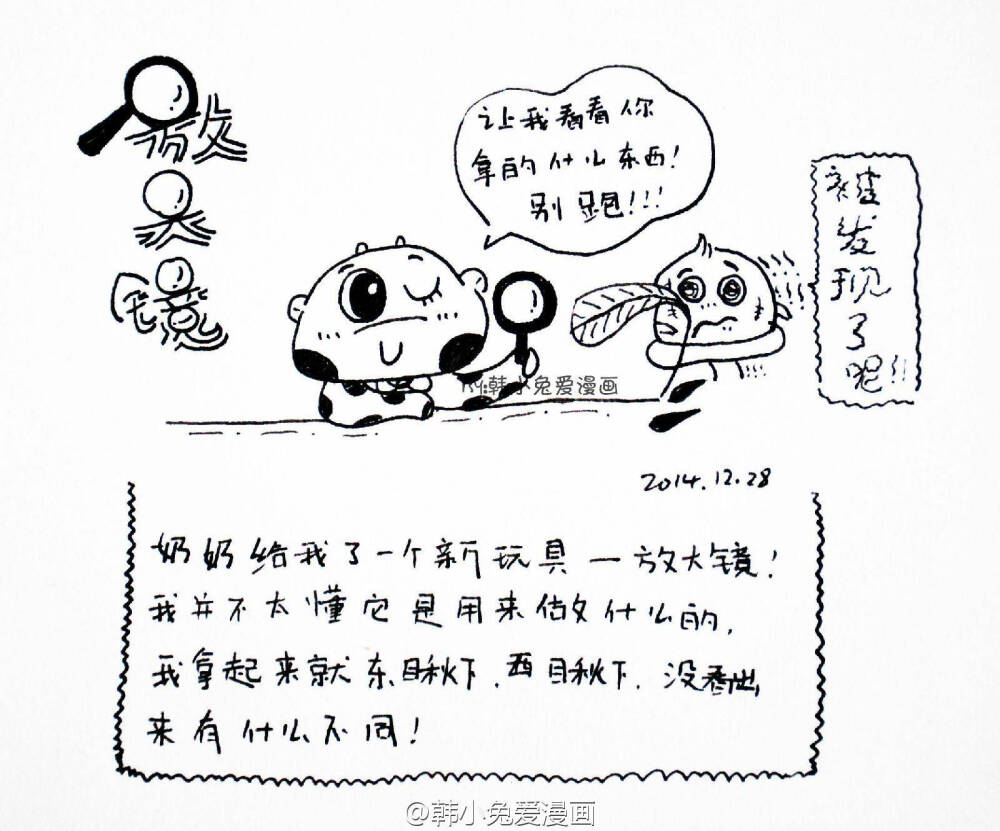 放大镜
让我看看你
拿的什么东西!
别跑!!!
被发现了呢!!
By:韩小兔爱漫画
2014.12.28
奶奶给我了一个新玩具一放大镜!
我并不太懂它是用来做什么的,
我拿起来就东瞅下,西瞅下,没看出
来有什么不同!
@韩小兔爱漫画